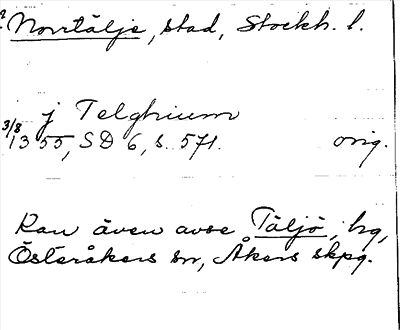 Norrtälje, stad, Stockh. l.
j Telghium
3/8 1355, SD 6, s. 571. orig.
Kan även avse Täljö, by,
Österåkers sn, Åkers skpg.